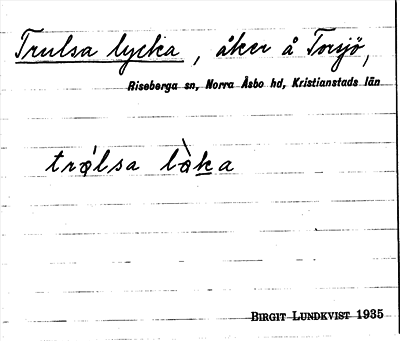 Trulsa lycka, åker å Torsjö,
Riseberga sn, Norra Åsbo hd, Kristianstads län
trǫ́lsa lø̀ka
BIRGIT LUNDKVIST 1935